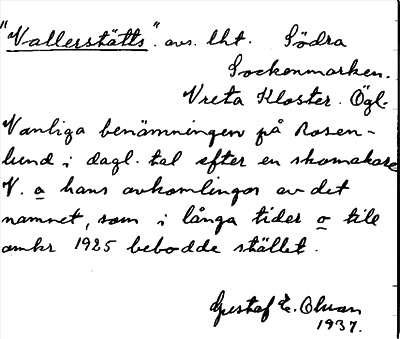 "Vallerstätts". avs. lht. Södra
Sockenmarken.
Vreta Kloster. Ögl.
Vanliga benämningen på Rosen-
lund i dagl. tal efter en skomakare
V. o hans avkomlingar av det
namnet, som i långa tider o till
omkr 1925 bebodde stället.
Gustaf E. Olsson
1937.